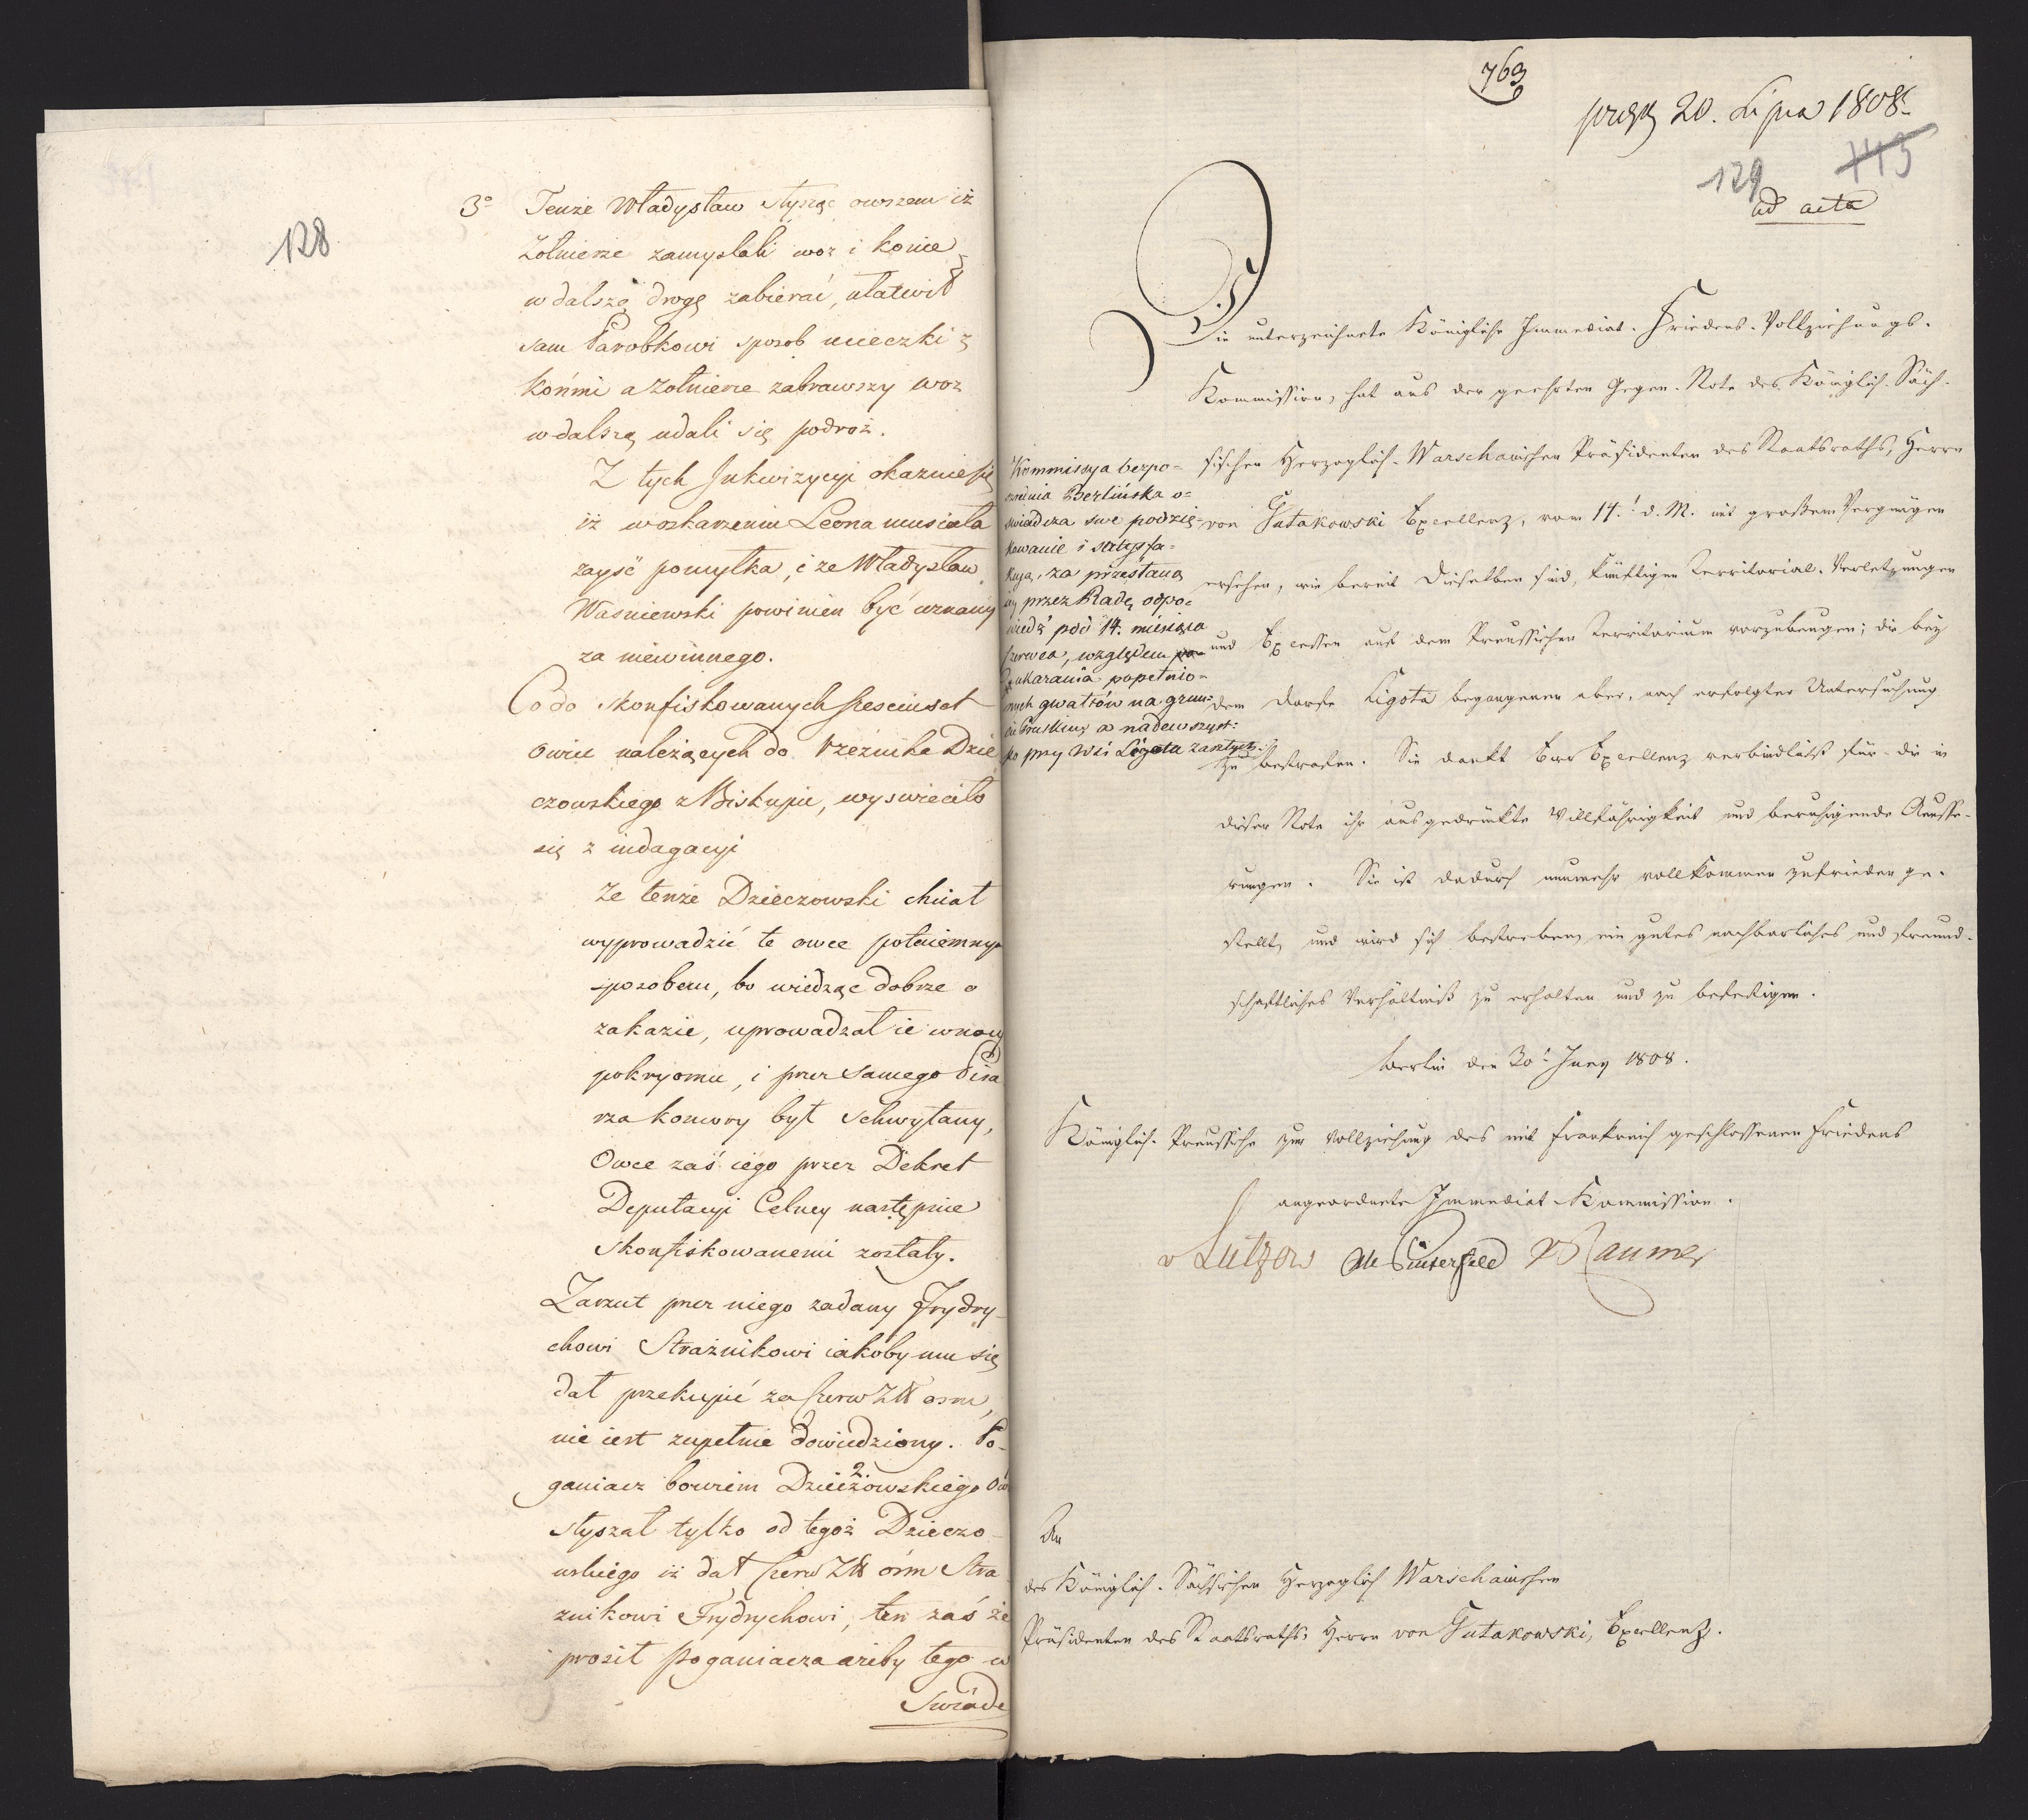 128
3º Tenże Władysław słysząc owszem iż
Żołnierze zamyslali woz i konie
w dalszą drogę zabierać, ułatwił
sam Parobkowi sposob ucieczki z
końmi a żołnierze zabrawszy woz
w dalszą udali się podroż.
Z tych Inkwizycyi okazuie się
iż w oskarzeniu Leona musiała
zayść pomyłka, i że Władysław
Wasniewski powinien być uznany
za niewinnego.
Co do skonfiskowanych sześciuset
owiec należących do Rzeznika Dzie
czowskiego z Biskupic, wyswieciło
się z indagacyi
że tenże Dzieczowski chciał
wyprowadzić te owce potaiemnym
sposobem, bo wiedząc dobrze o
zakazie, uprowadzał ie w nocy
pokryomu, i przez samego Pisa
rza komory był schwytany,
Owce zaś iego przez Dekret
Deputacyi Celney następnie
skonfiskowanemi zostały.
Zarzut przez niego zadany Frydry-
chowi Straznikowi iakoby mu się
dał przekupić za Czerw Złł osm,
nie iest zupełnie dowiedziony. Po-
ganiacz bowiem Dzieczowskiego
słyszał tylko od tegoż Dzieczo-
wskiego iż dał Czerw Złł osm Stra
znikowi Frydrychowi, ten zaś że
prosił Poganiacza ażeby tego w
Swiade
763
20. Lipca 1808.
129 115
ad acta
Die unterzeichnete Königliche Immediat-Friedens-Vollziehungs-
Kommission, hat aus der geehrten Gegen-Note des Königlich-Säch-
sischen Herzoglich-Warschauischen Präsidenten des Staatsraths, Herrn
von Gutakowski Excellenz, vom 14.t d. M. mit großem Vergnügen
ersehen, wie bereit Dieselben sind, künftigen Territorial-Verletzungen
und Excessen auf dem Preussischen Territorium vorzubeugen; die bey
dem Dorfe Ligota begangenen aber, nach erfolgter Untersuchung
zu bestrafen. Sie dankt Eurer Excellenz verbindlichst für die in
dieser Note ihr ausgedrückte Willfährigkeit und beruhigende Aeusse-
rungen. Sie ist dadurch nunmehr vollkommen zufrieden ge-
stellt, und wird sich bestreben, ein gutes nachbarliches und freund-
schaftliches Verhältniß zu erhalten und zu befestigen.
Berlin den 30t Juny 1808.
Königlich-Preussische zur Vollziehung des mit Frankreich geschlossenen Friedens
angeordnete Immediat-Kommission.
v Lützow v Raumer
Kommissya bezpo-
srednia Berlińska o-
swiadcza swe podzię-
kowanie i satysfa-
kcyą, za przesłaną
iey przez Radę odpo-
wiedź pod 14. miesiąca
Czerwca, względem
ukarania popełnio-
nych gwałtów na grun-
cie Pruskim, a nadewszyst-
ko przy wsi Ligota zaszłych.
An
des Königlich-Sächsischen Herzoglich Warschauischen
Präsidenten des Staatsraths, Herrn von Gutakowski, Excellenz.